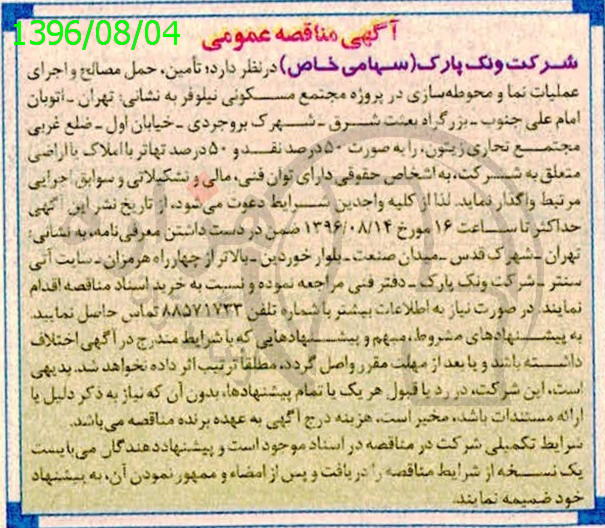 1396/08/04
آگهی مناقصه عمومی
شرکت ونک پارک (سهامی خاص) در نظر دارد؛ تأمین، حمل مصالح و اجرای
عملیات نما و محوطه‌سازی در پروژه مجتمع مسکونی نیلوفر به نشانی: تهران ـ اتوبان
امام علی جنوب ـ بزرگراه بعثت شرق ـ شهرک بروجردی ـ خیابان اول ـ ضلع غربی
مجتمع تجاری زیتون، را به صورت ۵۰ درصد نقد و ۵۰ درصد تهاتر با املاک یا اراضی
متعلق به شرکت، به اشخاص حقوقی دارای توان فنی، مالی و تشکیلاتی و سوابق اجرایی
مرتبط واگذار نماید. لذا از کلیه واجدین شرایط دعوت می‌شود، از تاریخ نشر این آگهی
حداکثر تا ساعت ۱۶ مورخ ۱۳۹۶/۰۸/۱۴ ضمن در دست داشتن معرفی‌نامه، به نشانی:
تهران ـ شهرک قدس ـ میدان صنعت ـ بلوار خوردین ـ بالاتر از چهارراه هرمزان ـ سایت آتی
سنتر ـ شرکت ونک پارک ـ دفتر فنی مراجعه نموده و نسبت به خرید اسناد مناقصه اقدام
نمایند. در صورت نیاز به اطلاعات بیشتر با شماره تلفن ۸۸۵۷۱۷۳۳ تماس حاصل نمایید.
به پیشنهادهای مشروط، مبهم و پیشنهادهایی که با شرایط مندرج در آگهی اختلاف
داشته باشد و یا بعد از مهلت مقرر واصل گردد، مطلقاً ترتیب اثر داده نخواهد شد. بدیهی
است، این شرکت، در رد یا قبول هر یک یا تمام پیشنهادها، بدون آن که نیاز به ذکر دلیل یا
ارائه مستندات باشد، مخیر است. هزینه درج آگهی به عهده برنده مناقصه می‌باشد.
شرایط تکمیلی شرکت در مناقصه در اسناد موجود است و پیشنهاددهندگان می‌بایست
یک نسخه از شرایط مناقصه را دریافت و پس از امضاء و ممهور نمودن آن، به پیشنهاد
خود ضمیمه نمایند.